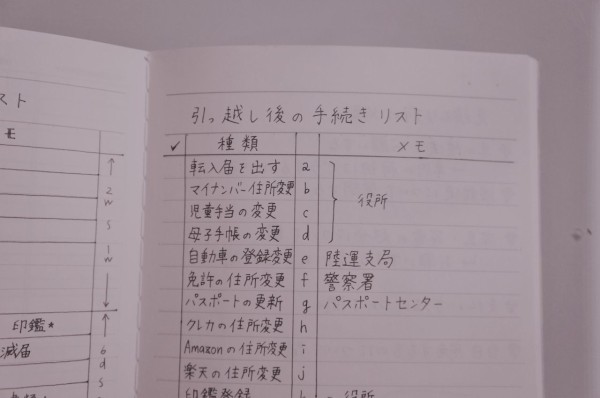 スト
モ
2w
5
1w
印鑑*
減届
6d
5
引っ越し後の手続きリスト
✓ 種類 メモ
転入届を出す a
マイナンバー住所変更 b
児童手当の変更 c
母子手帳の変更 d
役所
自動車の登録変更 e 陸運支局
免許の住所変更 f 警察署
パスポートの更新 g パスポートセンター
クレカの住所変更 h
Amazonの住所変更 i
楽天の住所変更 j
印鑑登録 k 役所